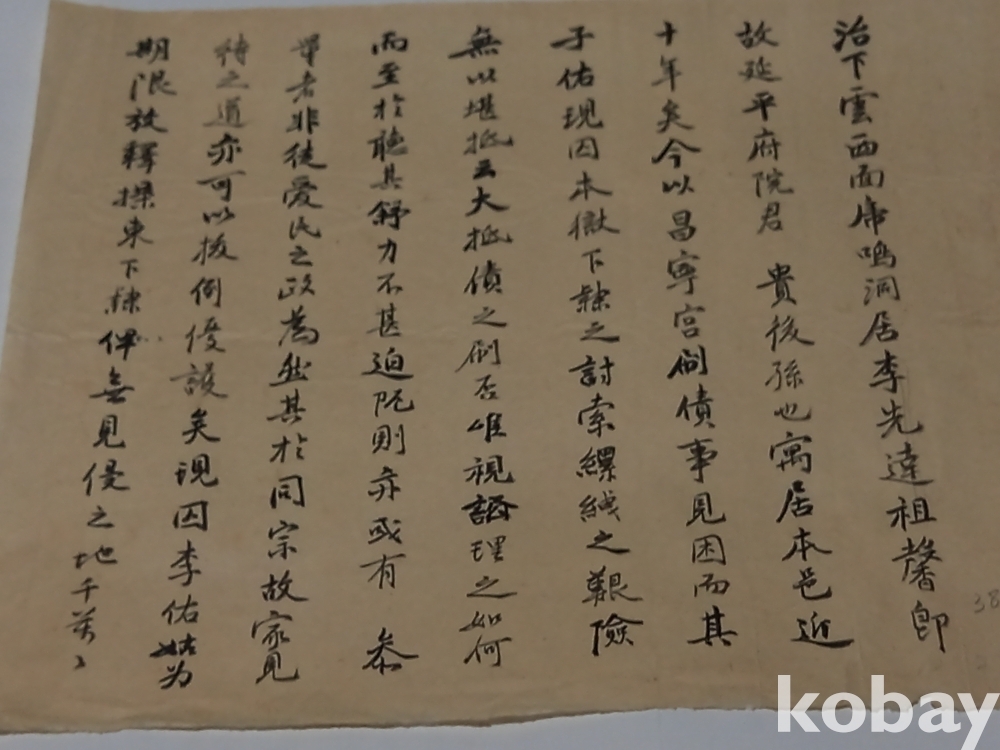 治下雲西面席鳴洞居李先達祖馨卽
故延平府院君 貴後孫也寓居本邑近
十年矣今以昌寧宮倒債事見困而其
子佑現囚本獄下隸之討索縲絏之艱險
無以堪抵云大抵債之刷否唯視誣理之如何
而至於聽其舒力不甚迫阨則亦或有 叅
量者非徒愛民之政為然其於同宗故家見
待之道亦可以援例優護矣現囚李佑姑为
期限放釋操束下隸俾無見侵之地千萬〻
38
kobay